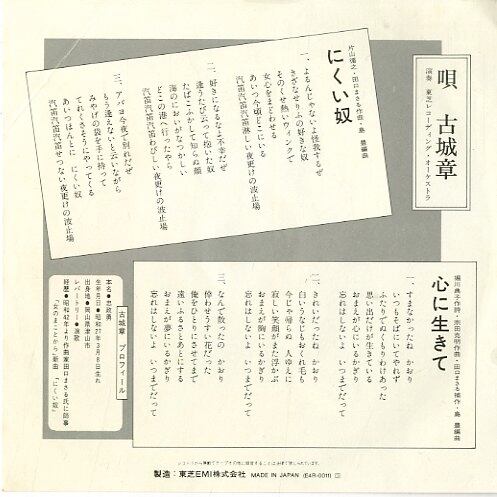 唄 古城章
演奏 東芝レコーディング・オーケストラ
にくい奴
片山 之・田口まさる作曲・島 豊編曲
一、よるんじゃないよ怪我するぜ
きざなせりふの好きな奴
そのくせ熱いウィンクで
女心をまどわせる
あいつ今頃どこにいる
汽笛笛笛淋しい夜更けの波止場
二、好きになるなよ不幸だぜ
逢うたび云って抱いた奴
たばこふかして知らぬ顔
海のにおいがなつかしい
どこの港へ行ったやら
汽笛笛笛わびしい夜更けの波止場
三、アバヨ今夜で別れだぜ
もう逢えないと云いながら
みやげの袋を手に持って
てれくさそうにやってくる
あいつほんとに にくい奴
汽笛笛笛せつない夜更けの波止場
心に生きて
堀川典子作詩・
田口まさる補作・島 豊編曲
一、すまなかったね かおり
いつもそばにいてやれず
ふたりでぬくもりわけあった
思い出だけが生きている
おまえが心にいるかぎり
忘れはしないよ いつまでだって
二、きれいだったね かおり
白いうなじもおくれ毛も
今じゃ帰らぬ 人ゆえに
寂しい笑顔がまた浮かぶ
おまえが胸にいるかぎり
忘れはしないよ いつまでだって
三、なんで散ったの かおり
侉わせうすい花だった
俺をひとりにさせてまで
遠いふるさとあとにする
おまえが夢にいるかぎり
忘れはしないよ いつまでだって
古城章 プロフィール
本名●忠政勇
生年月日●昭和27年3月8日生れ
出身地●岡山県津山市
レパートリー●演歌
経歴●昭和42年より作曲家田口まさる氏に師事
「女のまことから」新曲「にくい奴」
製造：東芝EMI株式会社 MADE IN JAPAN (E4R-0011)